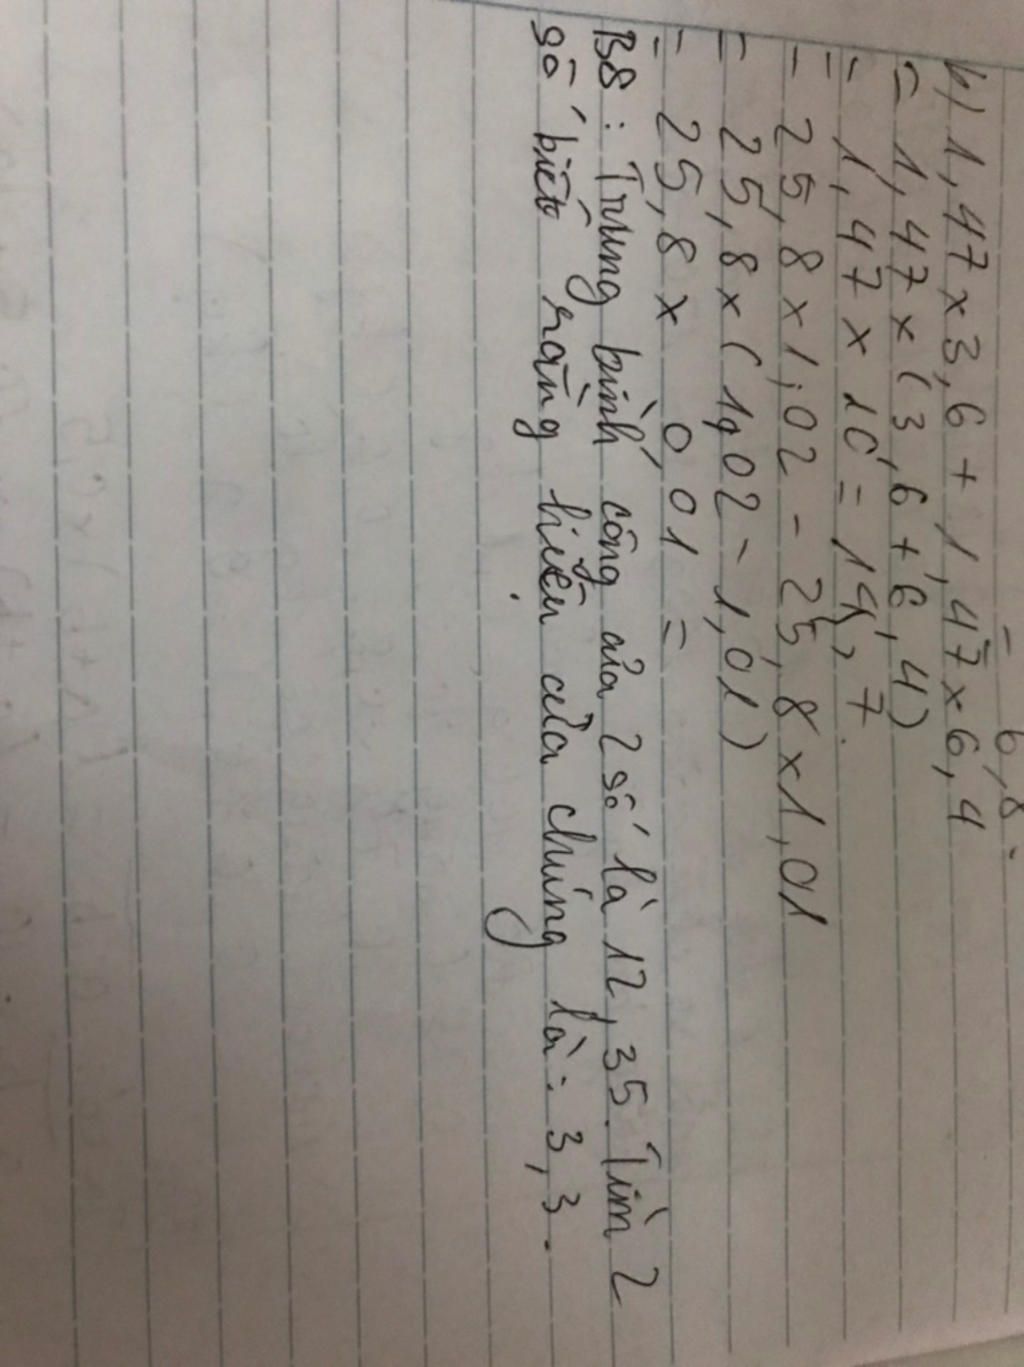 6,8.
b) 1,47 x 3,6 + 1,47 x 6,4
= 1,47 x (3,6 + 6,4)
= 1,47 x 10 = 14,7.
= 25,8 x 1,02 - 25,8 x 1,01
= 25,8 x (1,02 - 1,01)
= 25,8 x 0,01 =
B8: Trung bình cộng của 2 số là 12,35. Tìm 2
số biết rằng hiệu của chúng là: 3,3.